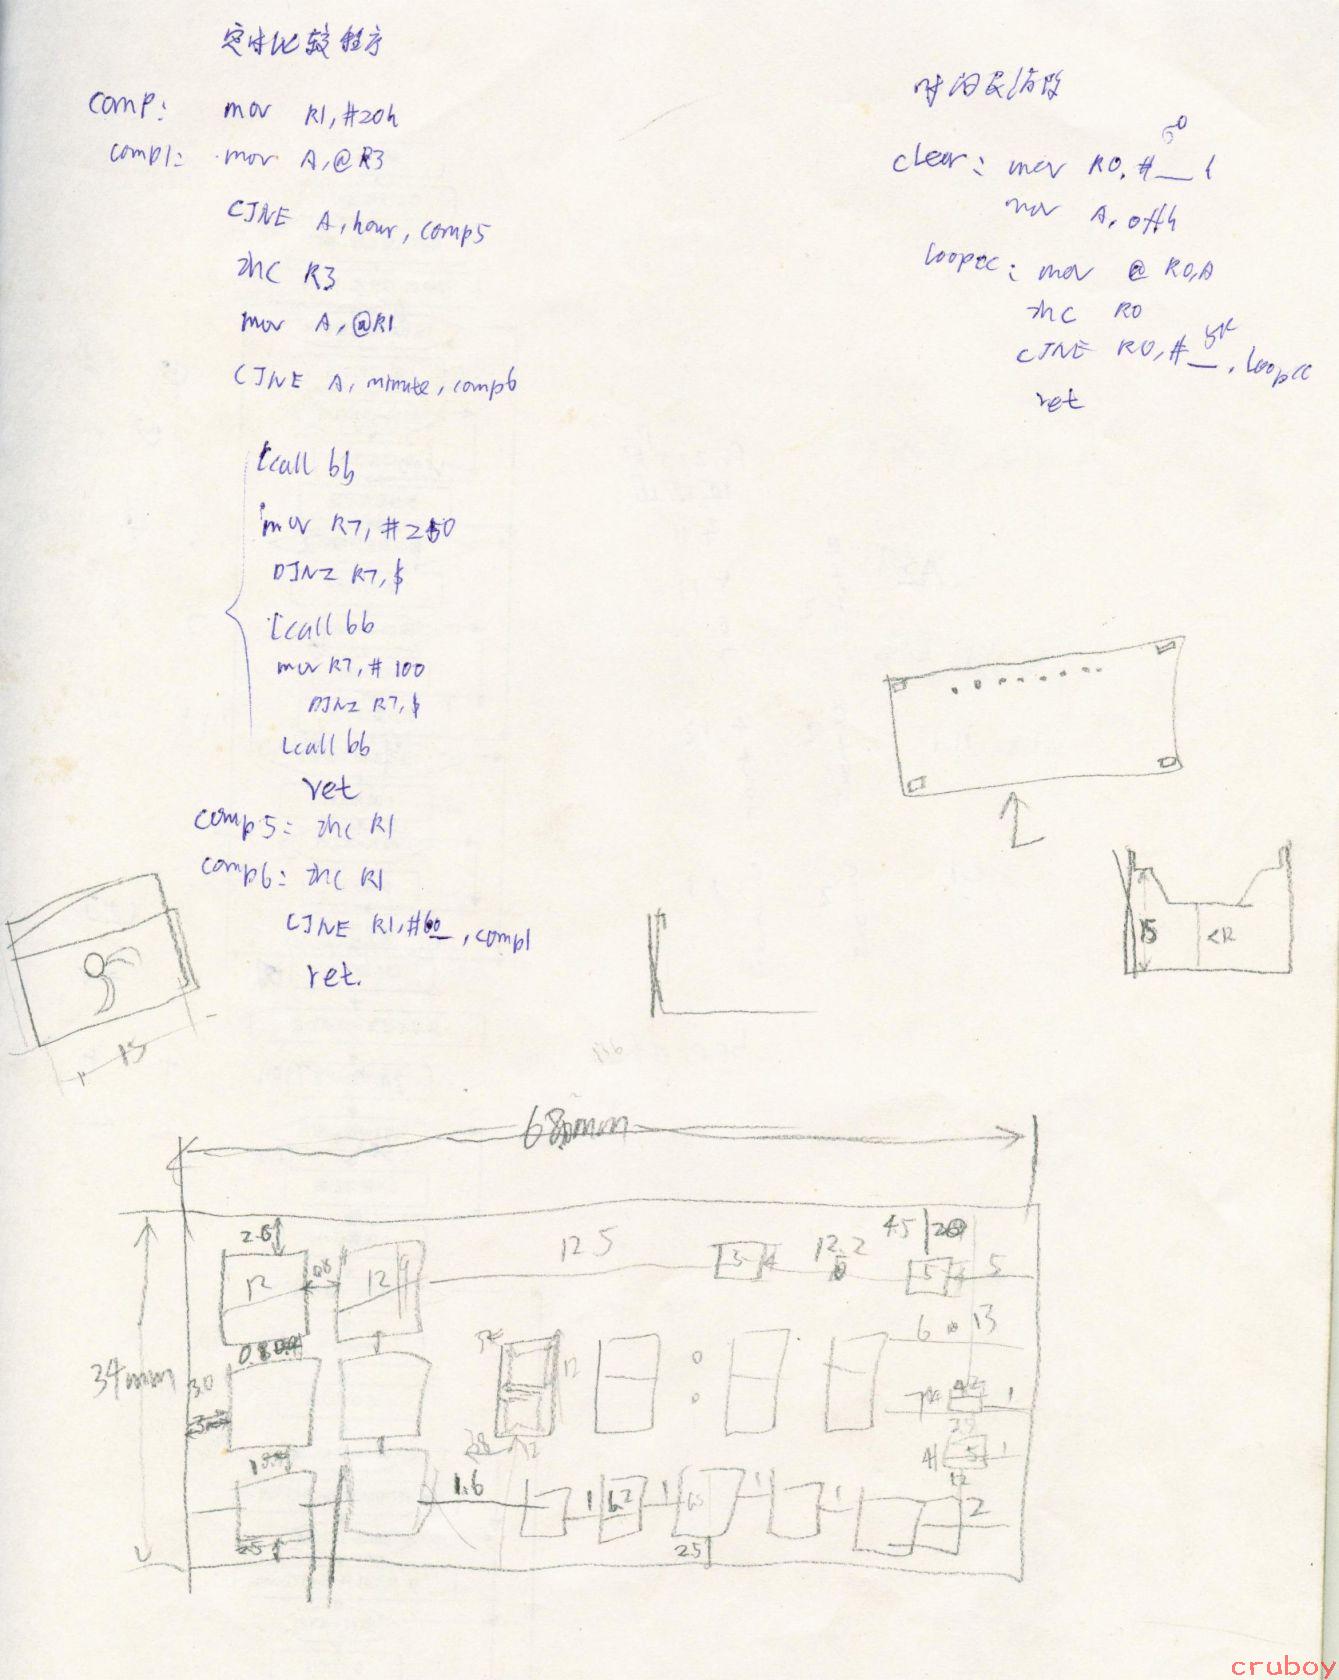 定时比较程序
comp: mov R1,#20h
comp1: mov A,@R3
CJNE A,hour,comp5
inc R3
mov A,@R1
CJNE A,minute,comp6
lcall bb
mov R7,#250
DJNZ R7,$
lcall bb
mov R7,#100
DJNZ R7,$
lcall bb
ret
comp5: inc R1
comp6: inc R1
CJNE R1,#60,comp1
ret.
clear: mov R0,#
mov A,0ffh
loopcc: mov @R0,A
inc R0
CJNE R0,#, loopcc
ret
15
15
<12
680mm
34mm
2.6
12
0.8
12
12.5
3
12.2
45
5
5
0.8
6
13
3.0
12
1
1
1.6
1
6.2
1
65
1
1
2
25
25
cruboy